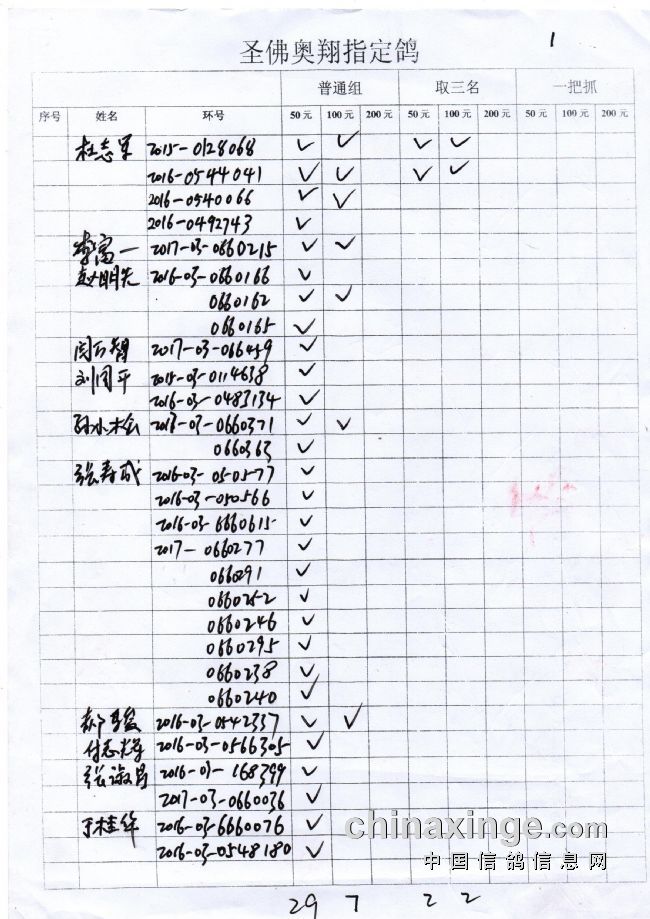 1
圣佛奥翔指定鸽
普通组 取三名 一把抓
序号 姓名 环号 50元 100元 200元 50元 100元 200元 50元 100元 200元
杜志军 2015-0128068 ✓ ✓ ✓ ✓
2016-0544041 ✓ ✓ ✓ ✓
2016-0540066 ✓ ✓
2016-0492743 ✓
李富一 2017-03-0660215 ✓ ✓
赵明先 2016-03-0660166 ✓
0660162 ✓ ✓
0660165 ✓
闫云智 2017-03-066459 ✓
刘同平 2015-03-0114638 ✓
2016-03-0483134 ✓
孙小松 -03-0660371 ✓ ✓
0660363 ✓
张寿成 2016-03-050577 ✓
2016-03-050566 ✓
2016-03-6660615 ✓
2017-0660277 ✓
066291 ✓
0660252 ✓
0660246 ✓
0660295 ✓
0660238 ✓
0660240 ✓
郝 2016-03-0542337 ✓ ✓
付志 2016-03-0566305 ✓
张 2016-03-168399 ✓
2017-03-0660036 ✓
于桂华 2016-03-6660076 ✓
2016-03-0548180 ✓
chinaxinge.com
中国信鸽信息网
29 7 2 2